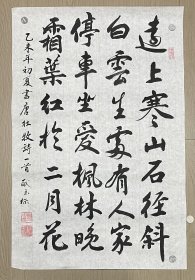 遠上寒山石徑斜
白雲生處有人家
停車坐愛楓林晚
霜葉紅於二月花
乙未年初夏書唐杜牧詩一首